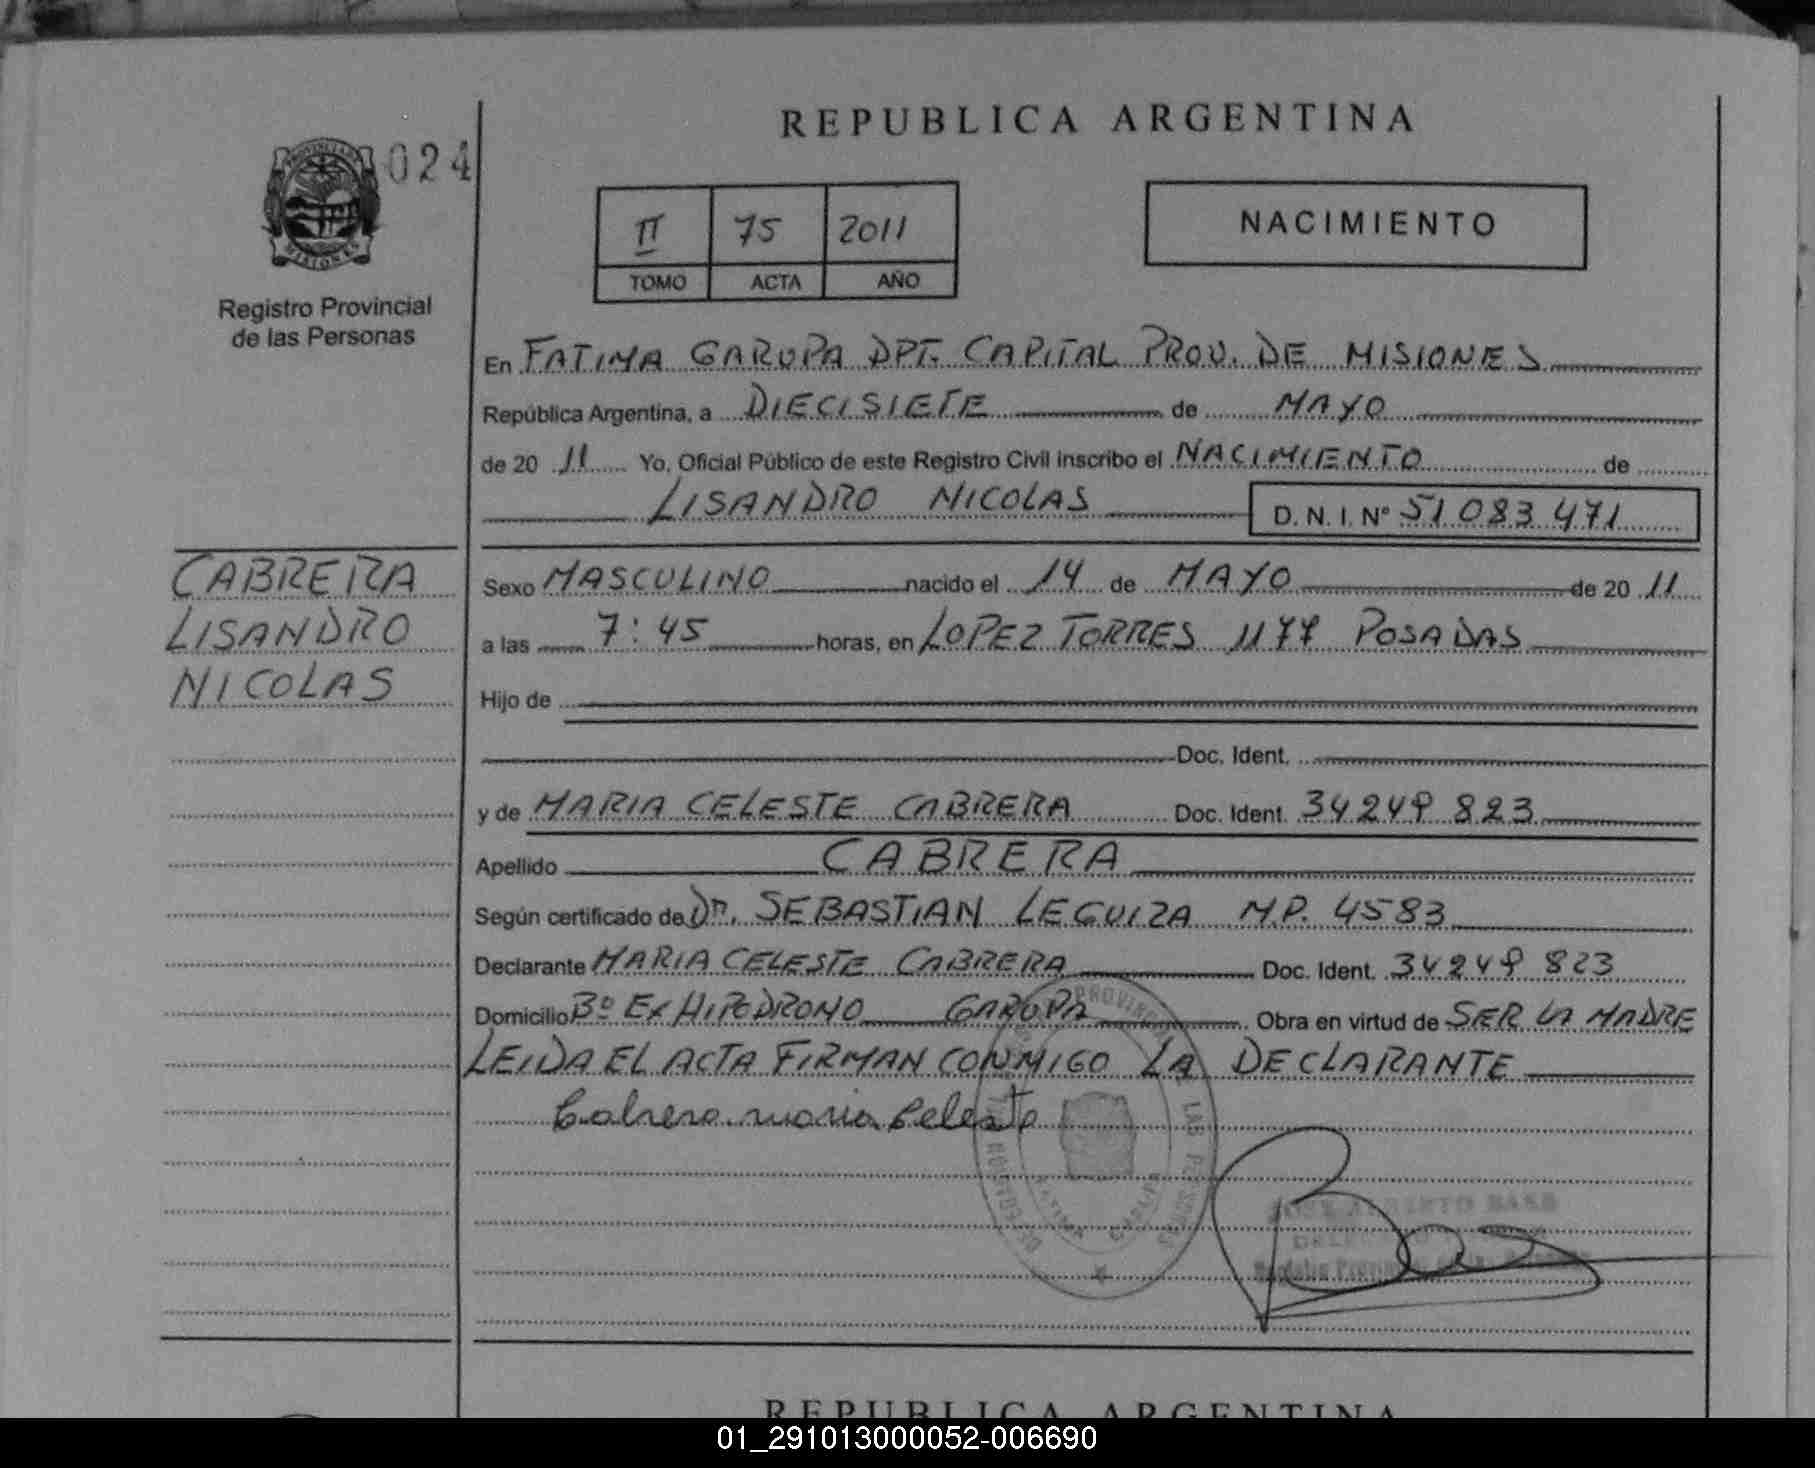 REPUBLICA ARGENTINA
024
PROVINCIA DE
MISIONES
Registro Provincial
de las Personas
II 75 2011
TOMO ACTA AÑO
NACIMIENTO
En FATIMA GARUPA DPT. CAPITAL PROV. DE MISIONES
República Argentina, a DIECISIETE de MAYO
de 20 11 Yo, Oficial Público de este Registro Civil inscribo el NACIMIENTO de
LISANDRO NICOLAS D. N. I. Nº 51 083 471
CABRERA
LISANDRO
NICOLAS
Sexo MASCULINO nacido el 14 de MAYO de 20 11
a las 7:45 horas, en LOPEZ TORRES 1177 POSADAS
Hijo de
Doc. Ident.
y de MARIA CELESTE CABRERA Doc. Ident. 34 249 823
Apellido CABRERA
Según certificado de Dr. SEBASTIAN LEGUIZA M.P. 4583
Declarante MARIA CELESTE CABRERA Doc. Ident. 34 249 823
Domicilio Bº EX HIPODROMO GARUPA Obra en virtud de SER LA MADRE
LEIDA EL ACTA FIRMAN CONMIGO LA DECLARANTE
Cabrera maria Celeste
JOSE ALBERTO BASE
REPUBLICA ARGENTINA
01_291013000052-006690